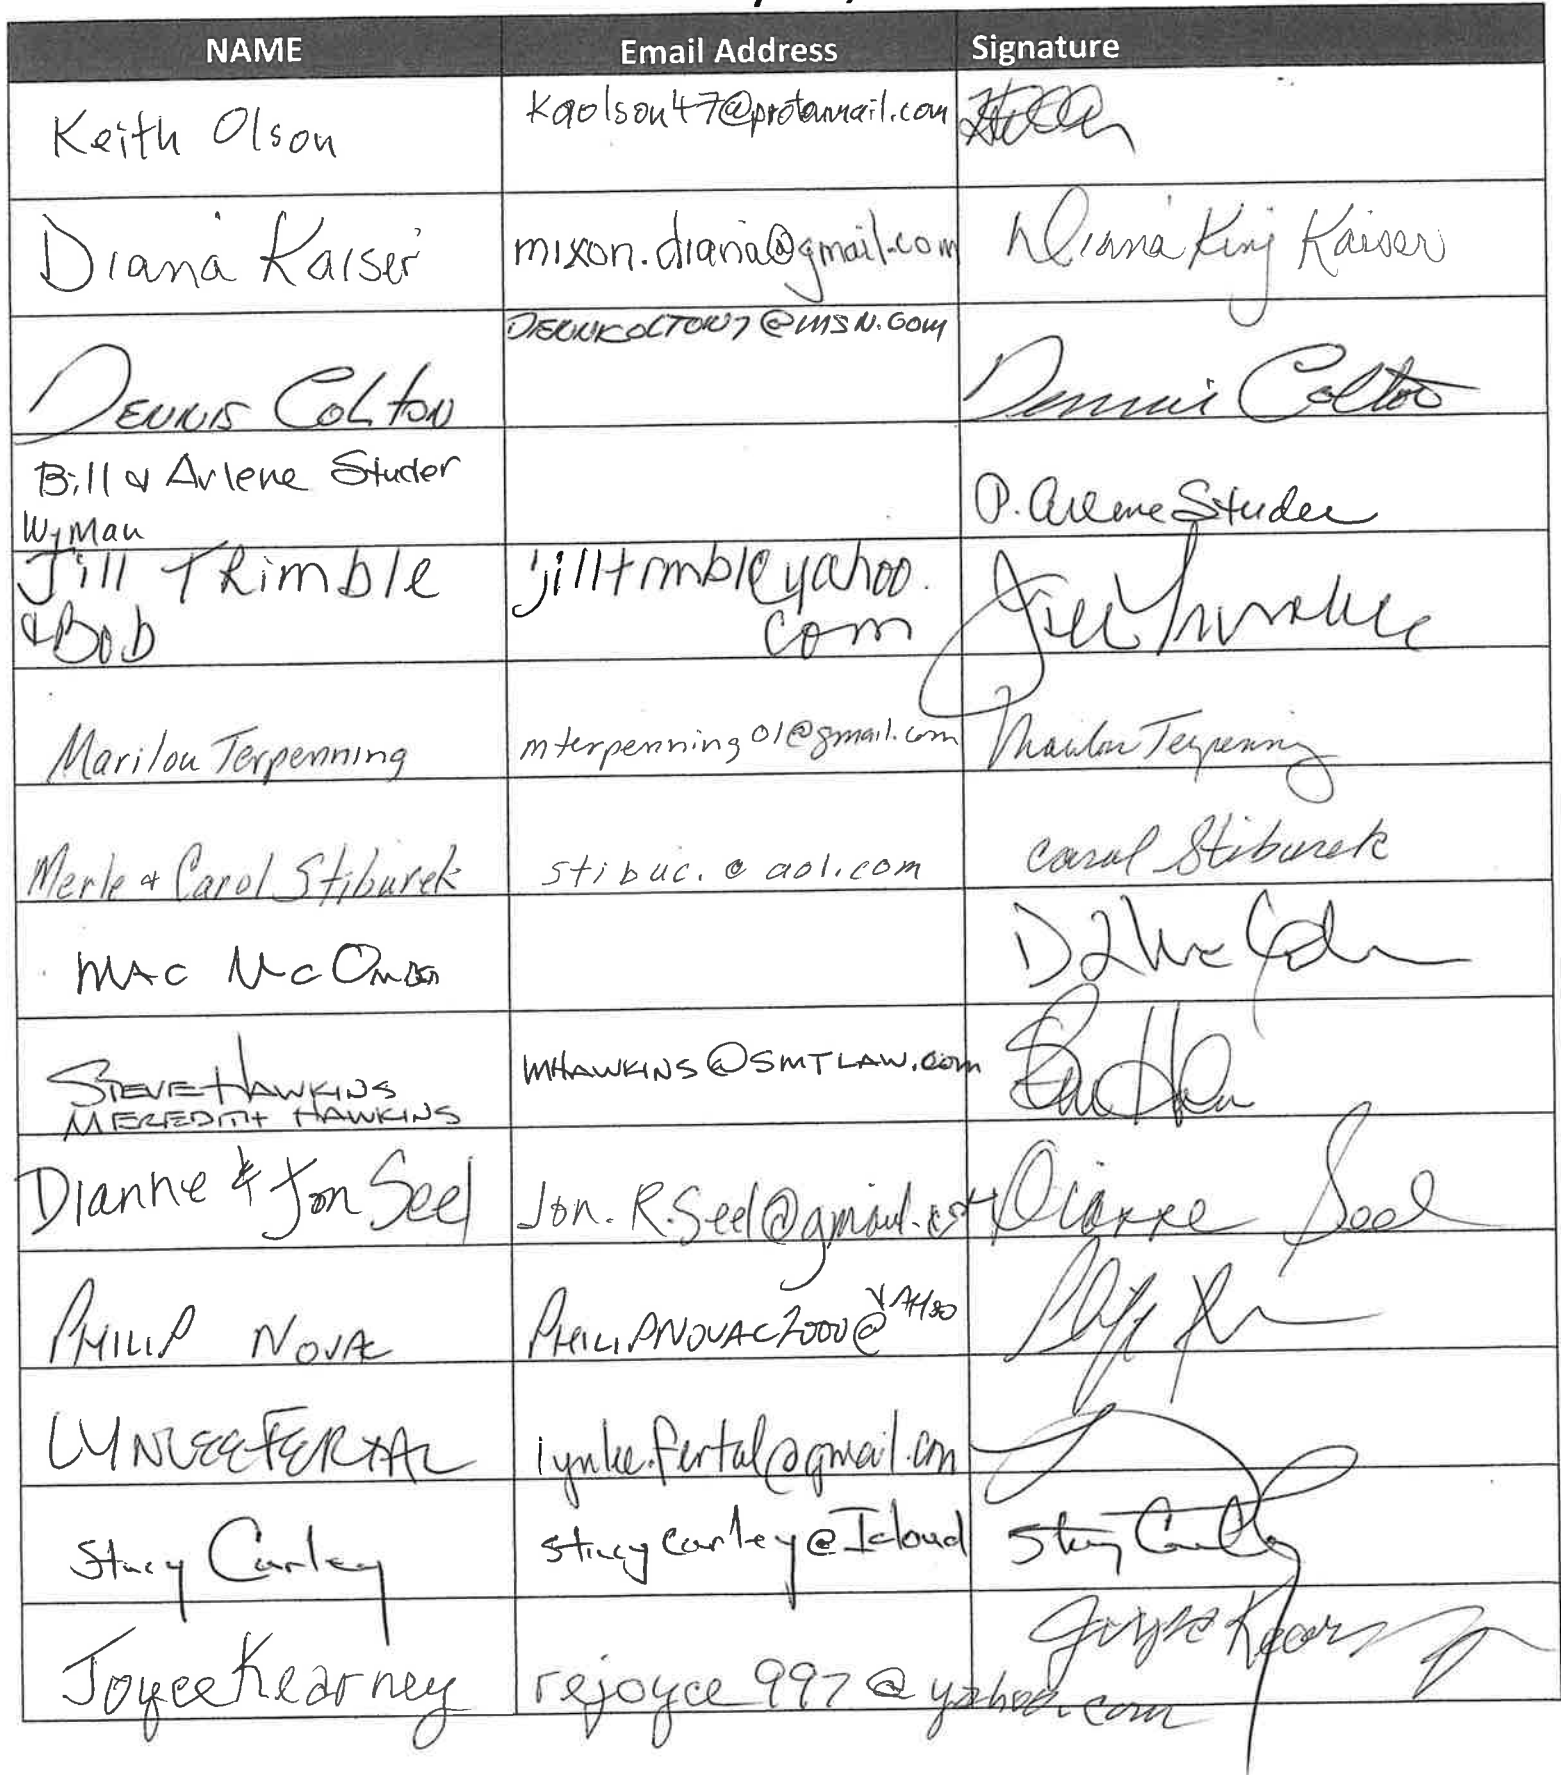 NAME Email Address Signature
Keith Olson kaolson47@protonmail.com
Diana Kaiser mixon.diana@gmail.com Diana King Kaiser
DENNIS COLTON DENNKOLTON7@MSN.COM Dennis Colton
Bill & Arlene Studer P. Arlene Studer
Wyman
Jill TRimble 'jilltrmble yahoo. Jill Trimble
& Bob com
Marilou Terpenning mterpenning01@gmail.com Marilou Terpenning
Merle & Carol Stiburek stibuc.@aol.com Carol Stiburek
MAC McOmber
STEVE HAWKINS MHAWKINS@SMTLAW.com
MEREDITH HAWKINS
Dianne & Jon Seel Jon.R.Seel@gmail. Dianne Seel
PHILIP NOVAC PHILIPNOVAC2000@YAHOO
LYNLEE FERTAL lynlee.fertal@gmail.com
Stacy Curley stacycurley@Icloud Stacy Curley
Joyce Kearney rejoyce997@yahoo.com Joyce Kearney